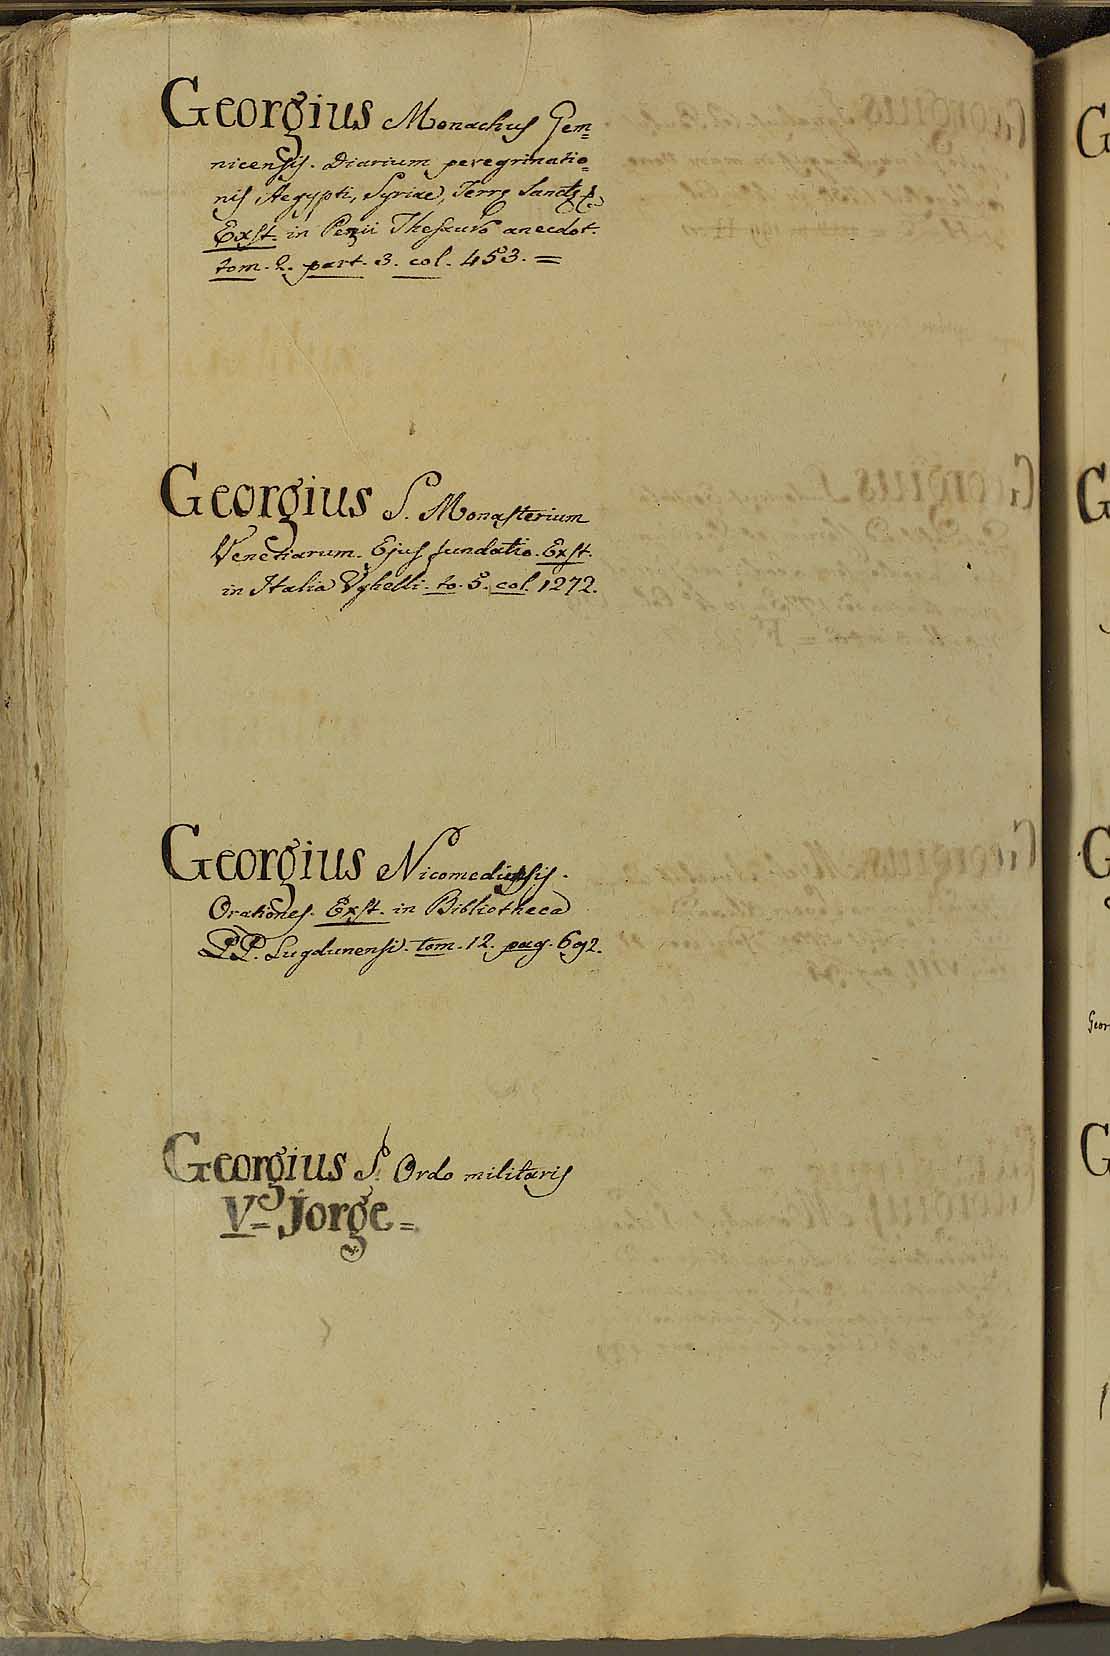 Georgius Monachus Gem=
nicensis. Diarium peregrinatio=
nis, Aegypti, Syriae, Terrę Sanctę &.
Exst. in Pezii Thesauro anecdot.
tom. 2. part. 3. col. 453. =
Georgius S. Monasterium
Venetiarum. Ejus fundatio. Exst.
in Italia Vghelli. to. 5. col. 1272.
Georgius Nicomediensis.
Orationes. Exst. in Bibliotheca
PP. Lugdunensi. tom. 12. pag. 692.
Georgius S. Ordo militaris
Vᵉ= Jorge=
G
G
G
Geor
G